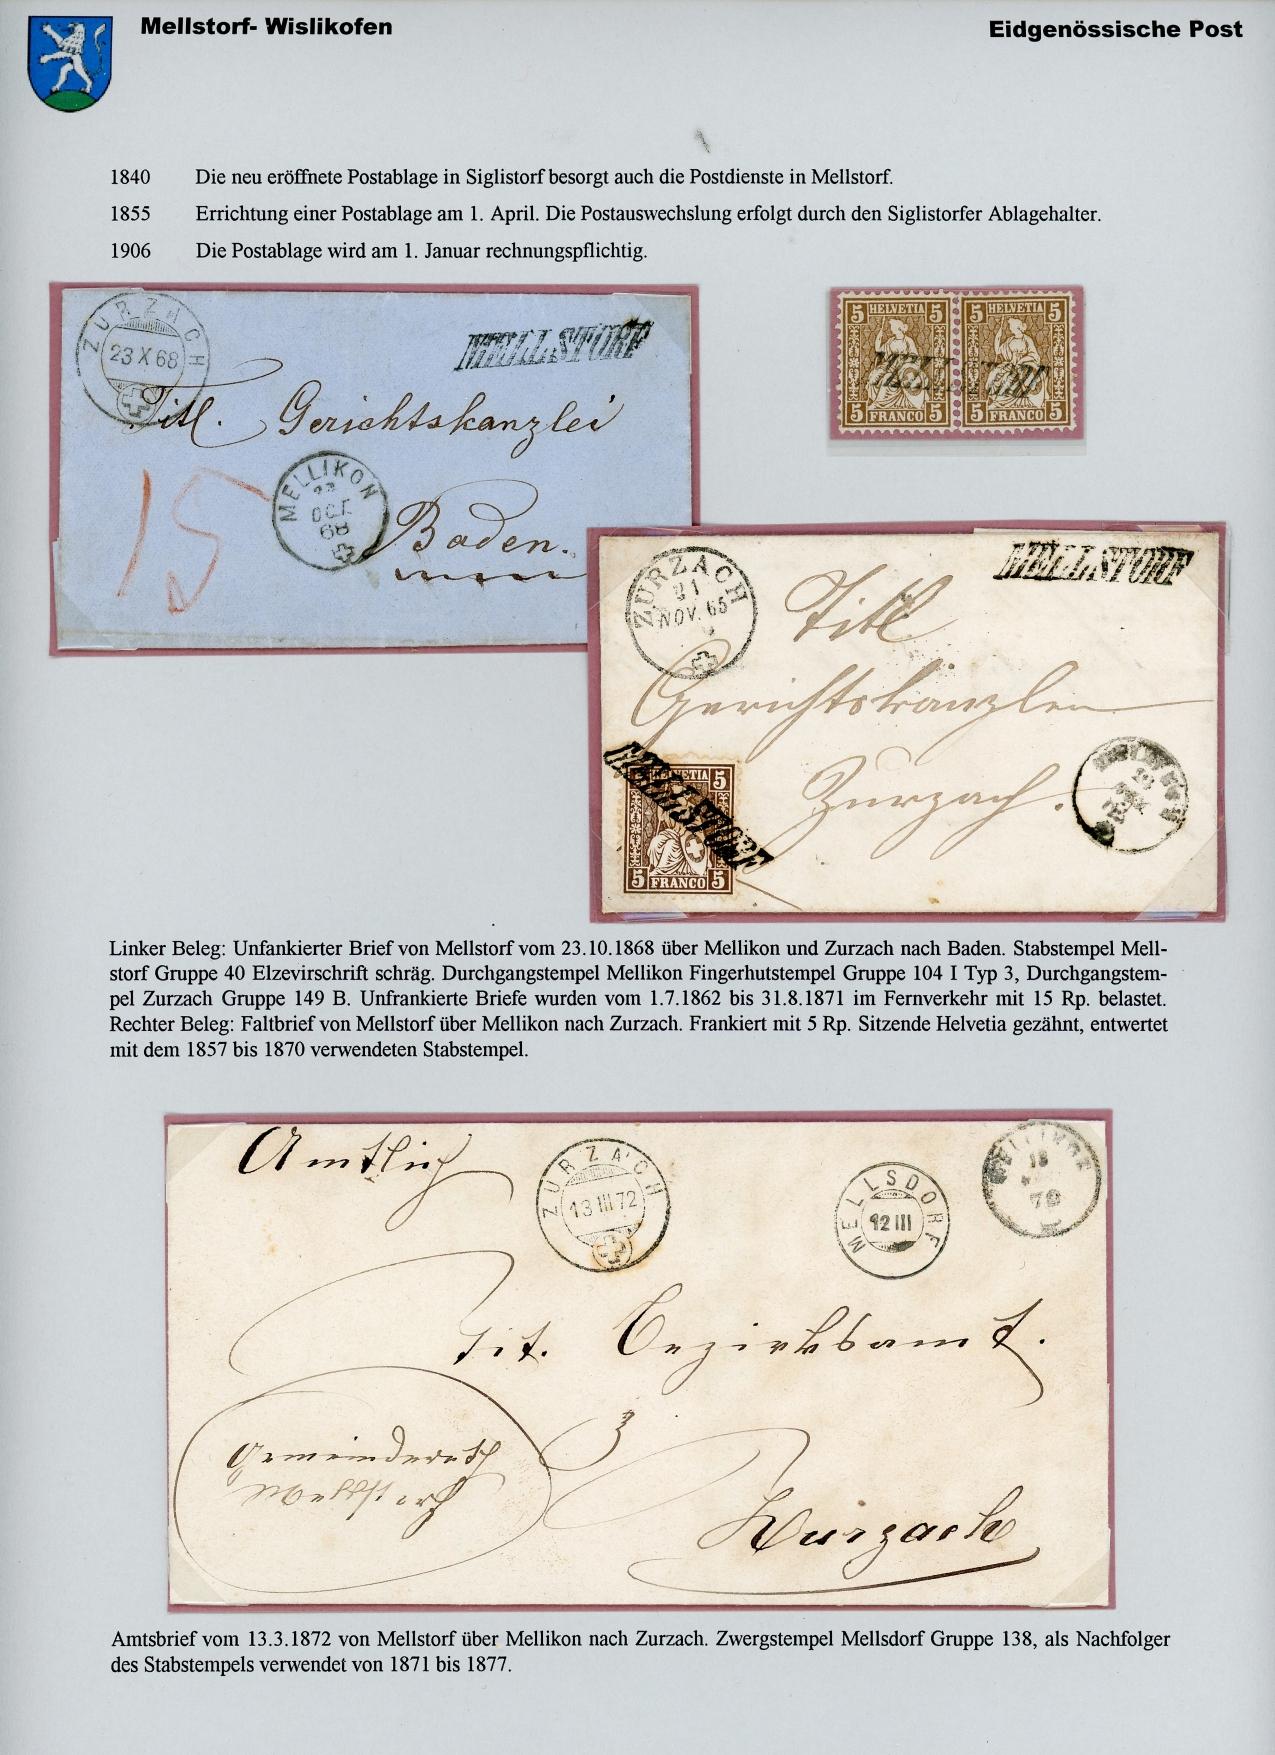 Mellstorf- Wislikofen
Eidgenössische Post
1840 Die neu eröffnete Postablage in Siglistorf besorgt auch die Postdienste in Mellstorf.
1855 Errichtung einer Postablage am 1. April. Die Postauswechslung erfolgt durch den Siglistorfer Ablagehalter.
1906 Die Postablage wird am 1. Januar rechnungspflichtig.
ZURZACH
23 X 68
MELLSTORF
Titl. Gerichtskanzlei
MELLIKON
OCT.
68
15
Baden.
5 HELVETIA 5
5 FRANCO 5
5 HELVETIA 5
5 FRANCO 5
MELLSTORF
ZURZACH
21
NOV. 65
MELLSTORF
Titl
Gerichtskanzley
Zurzach.
HELVETIA 5
MELLSTORF
5 FRANCO 5
Linker Beleg: Unfankierter Brief von Mellstorf vom 23.10.1868 über Mellikon und Zurzach nach Baden. Stabstempel Mell-
storf Gruppe 40 Elzevirschrift schräg. Durchgangstempel Mellikon Fingerhutstempel Gruppe 104 I Typ 3, Durchgangstem-
pel Zurzach Gruppe 149 B. Unfrankierte Briefe wurden vom 1.7.1862 bis 31.8.1871 im Fernverkehr mit 15 Rp. belastet.
Rechter Beleg: Faltbrief von Mellstorf über Mellikon nach Zurzach. Frankiert mit 5 Rp. Sitzende Helvetia gezähnt, entwertet
mit dem 1857 bis 1870 verwendeten Stabstempel.
Amtlich
ZURZACH
13 III 72
MELLSDORF
12 III
18
72
Tit. Bezirksamt.
Gemeinderath
Mellstorf
Zurzach
Amtsbrief vom 13.3.1872 von Mellstorf über Mellikon nach Zurzach. Zwergstempel Mellsdorf Gruppe 138, als Nachfolger
des Stabstempels verwendet von 1871 bis 1877.